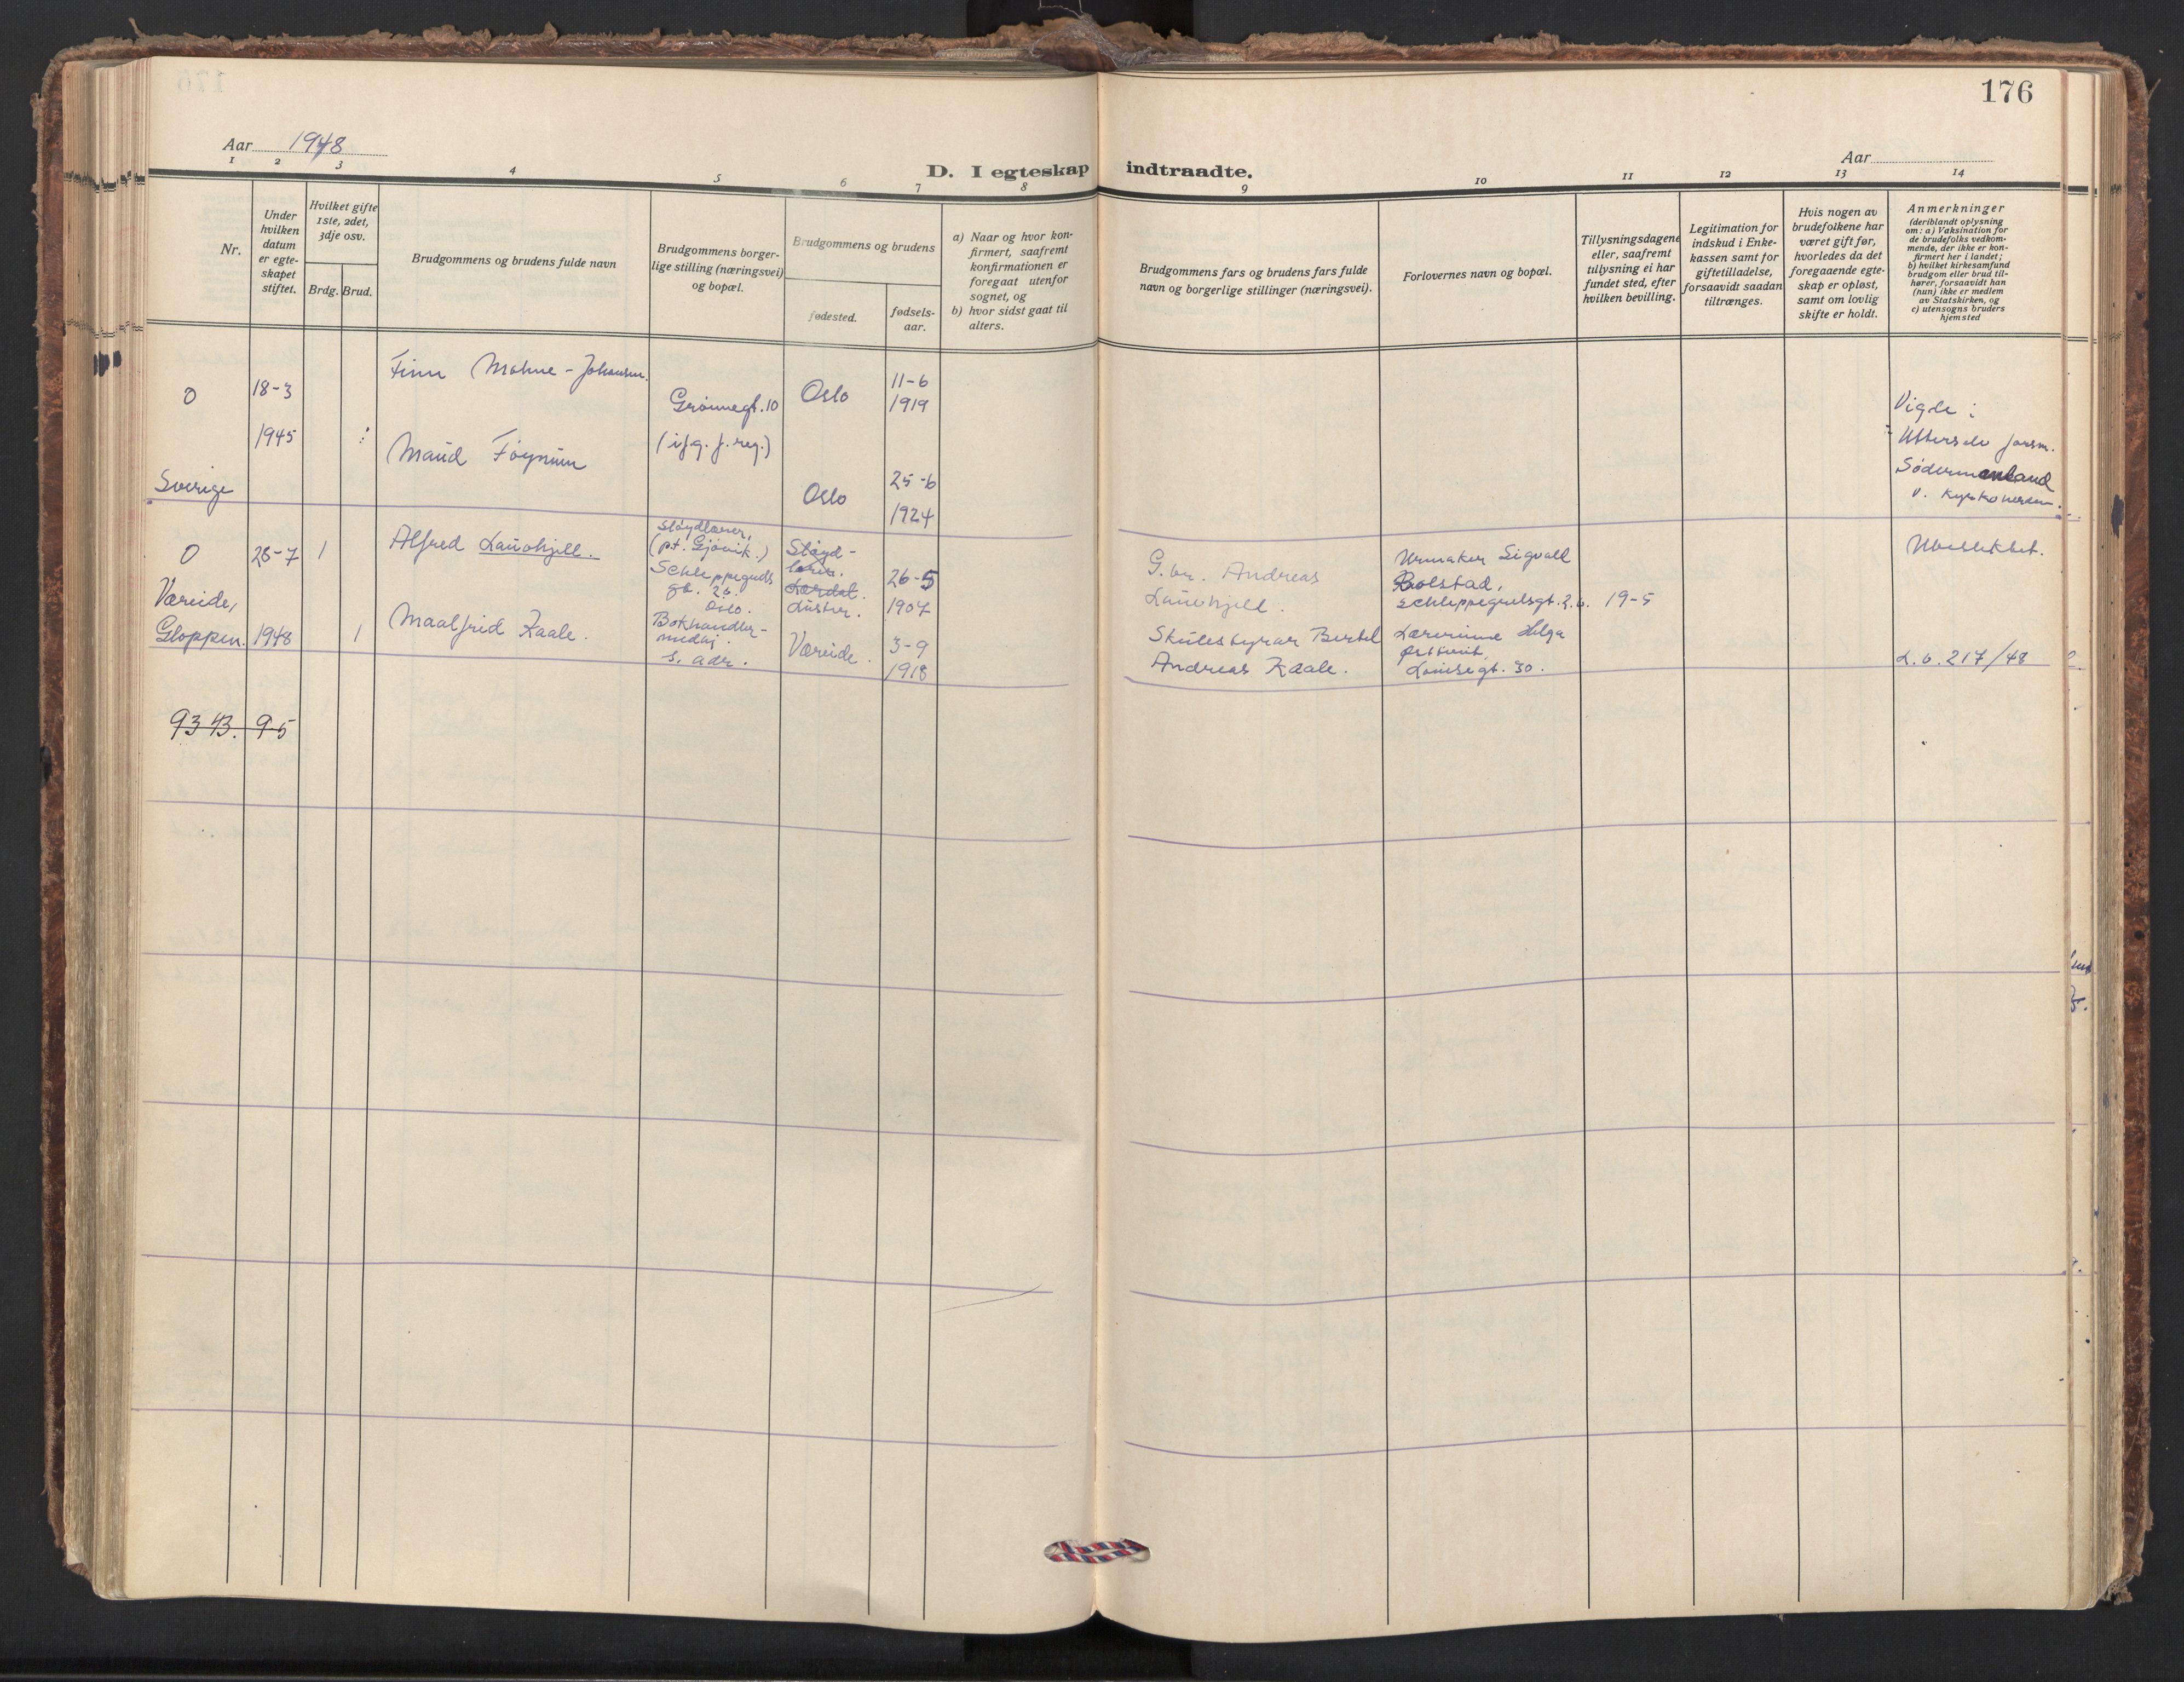 176
Aar 1948
Aar
D. I egteskap indtraadte.
1 2 3 4 5 6 7 8 9 10 11 12 13 14
Nr.
Under
hvilken
datum
er egte-
skapet
stiftet.
Hvilket gifte
1ste, 2det,
3dje osv.
Brdg. Brud.
Brudgommens og brudens fulde navn
Brudgommens borger-
lige stilling (næringsvei)
og bopæl.
Brudgommens og brudens
fødested.
fødsels-
aar.
a) Naar og hvor kon-
firmert, saafremt
konfirmationen er
foregaat utenfor
sognet, og
b) hvor sidst gaat til
alters.
Brudgommens fars og brudens fars fulde
navn og borgerlige stillinger (næringsvei).
Forlovernes navn og bopæl.
Tillysningsdagene
eller, saafremt
tillysning ei har
fundet sted, efter
hvilken bevilling.
Legitimation for
indskud i Enke-
kassen samt for
giftetilladelse,
forsaavidt saadan
tiltrænges.
Hvis nogen av
brudefolkene har
været gift før,
hvorledes da det
foregaaende egte-
skap er opløst,
samt om lovlig
skifte er holdt.
Anmerkninger
(deriblandt oplysning
om: a) Vaksination for
de brudefolks vedkom-
mende, der ikke er kon-
firmert her i landet;
b) hvilket kirkesamfund
brudgom eller brud til-
hører, forsaavidt han
(hun) ikke er medlem
av Statskirken, og
c) utensogns bruders
hjemsted
0
Sverige
18-3
1945
Finn Mohne-Johansen.
Maud Føynum
Grønnegt. 10
(ifg. f. reg.)
Oslo
11-6
1919
Oslo
25-6
1924
Vigde i
forsm.
Södermanland
0
Væreide,
Gloppen.
28-7
1948
1
1
Alfred Lauvhjell.
Maalfrid Kaale.
Sløydlærer,
(pt. Gjøvik.)
Schleppegrells
gt. 26.
Oslo.
Bokhandler-
medhj.
s. adr.
Sløyd-
lærer.
Lærdal.
Luster.
Væreide.
26-5
1907
3-9
1918
G.br. Andreas
Lauvhjell.
Skulestyrar Bertel
Andreas Kaale.
Urmaker Sigvald
Bolstad,
Schleppegrelsgt. 26.
Lærerinne Helga
Louisegt. 30.
19-5
Ubeslektet.
L.b. 217/48
9343. 9-5